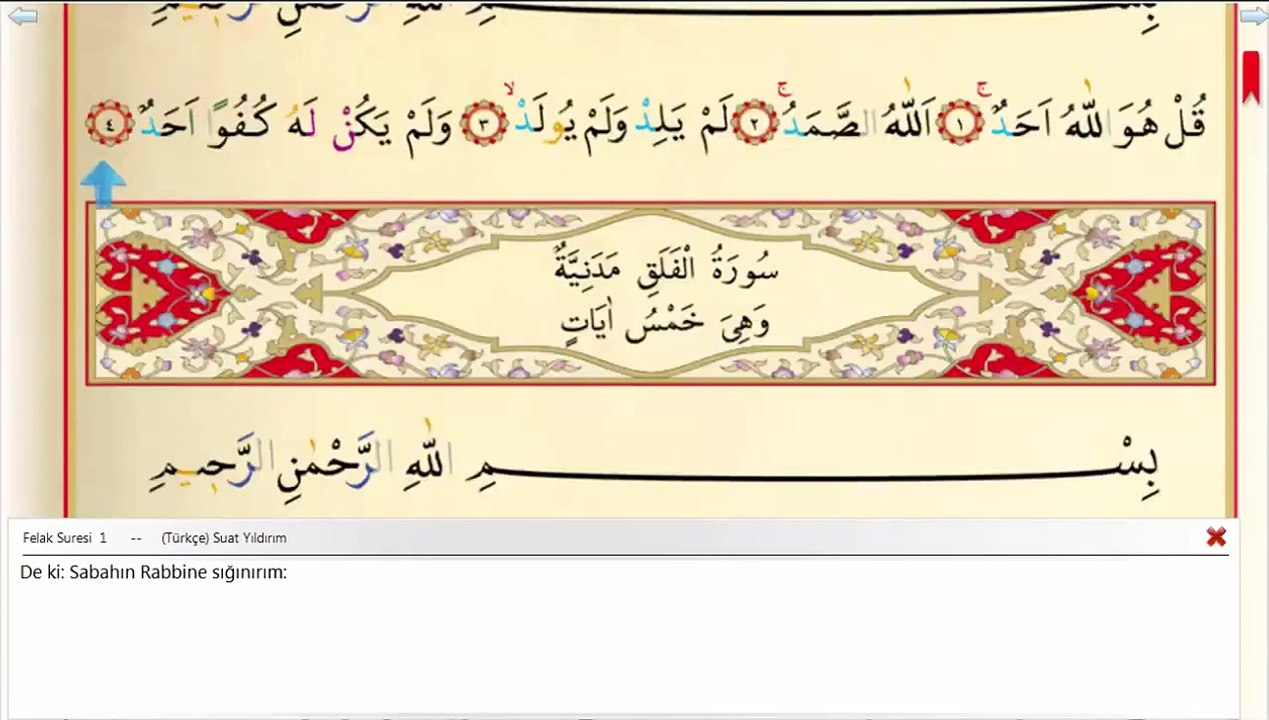 قُلْ هُوَ اللّٰهُ اَحَدٌۚ ﴿١﴾ اَللّٰهُ الصَّمَدُۚ ﴿٢﴾ لَمْ يَلِدْ وَلَمْ يُولَدْۙ ﴿٣﴾ وَلَمْ يَكُنْ لَهُ كُفُوًا اَحَدٌ ﴿٤﴾
سُورَةُ الْفَلَقِ مَدَنِيَّةٌ
وَهِىَ خَمْسُ اٰيَاتٍ
بِسْمِ اللّٰهِ الرَّحْمٰنِ الرَّحٖيمِ
Felak Suresi 1 -- (Türkçe) Suat Yıldırım
De ki: Sabahın Rabbine sığınırım: